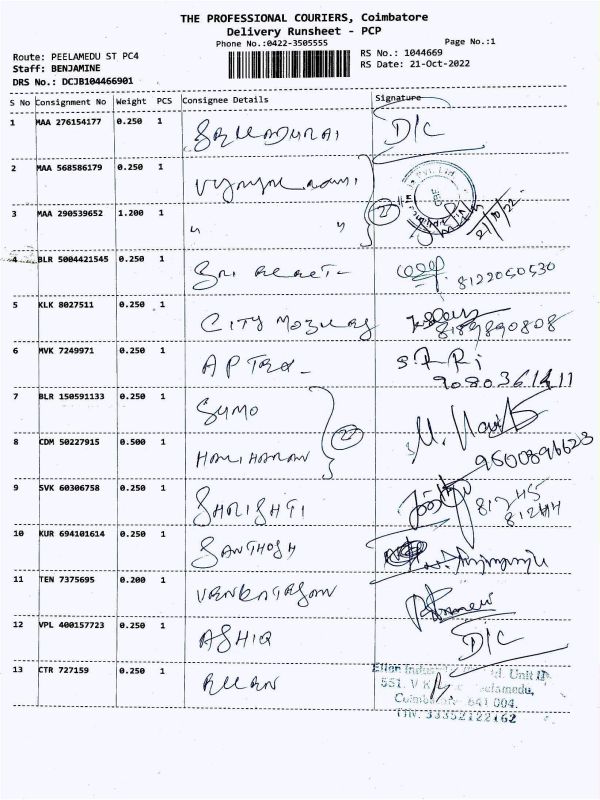 THE PROFESSIONAL COURIERS, Coimbatore
Delivery Runsheet - PCP
Phone No.:0422-3505555
Page No.:1
Route: PEELAMEDU ST PC4
RS No.: 1044669
Staff: BENJAMINE
RS Date: 21-Oct-2022
DRS No.: DCJB104466901
S No Consignment No Weight PCS Consignee Details Signature
1 MAA 276154177 0.250 1 D/C
2 MAA 568586179 0.250 1
3 MAA 290539652 1.200 1 " "
21/10/22
4 BLR 5004421545 0.250 1 8122050530
5 KLK 8027511 0.250 1 CITY
8189890808
6 MVK 7249971 0.250 1
7 BLR 150591133 0.250 1 SUMO
8 CDM 50227915 0.500 1 HARIHARAN
9 SVK 60306758 0.250 1 SHRISHTI 81245
81244
10 KUR 694101614 0.250 1 SANTHOSH
11 TEN 7375695 0.200 1
12 VPL 400157723 0.250 1 ASHIQ D/C
13 CTR 727159 0.250 1
Unit II
551, V K
641 004.
33352122162